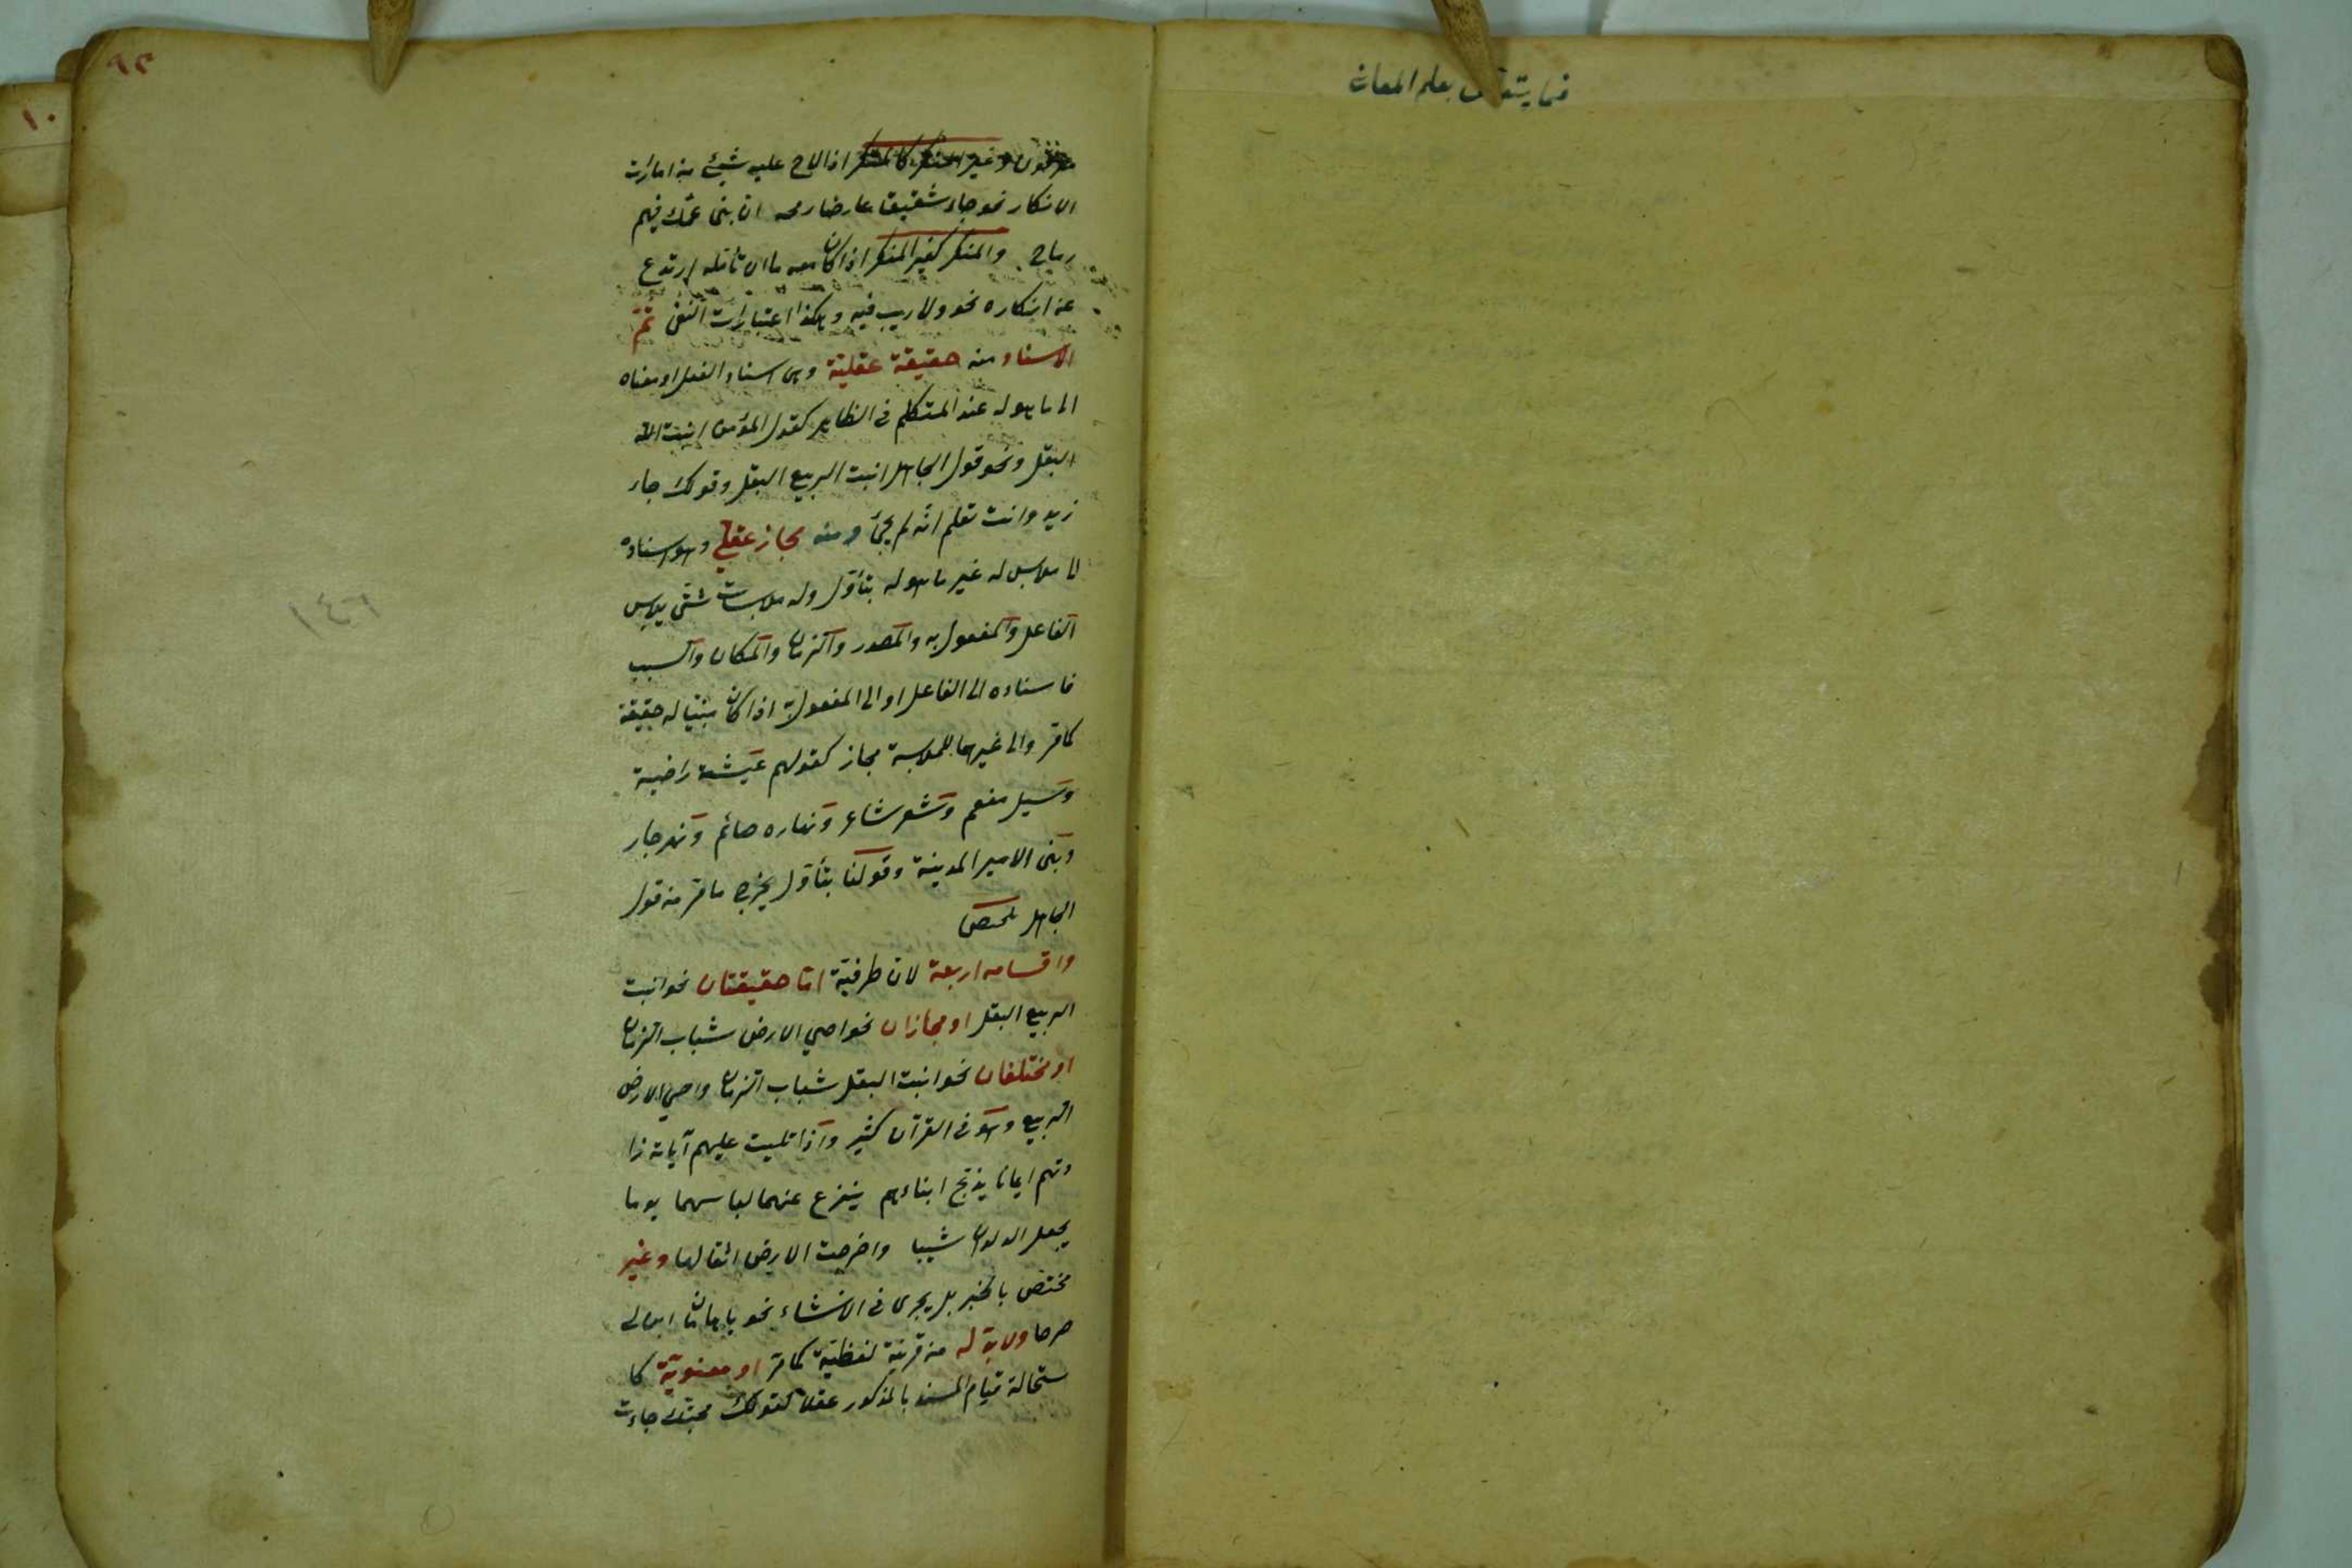 فيما يتعلق بعلم المعانى
٩٢
١٠
مغرقون وغير المنكر كالمنكر اذا لاح عليه شيئ من امارات
الانكار نحو جاء شقيق عارضا رمحه ان بنى عمك فيهم
رماح والمنكر كغير المنكر اذا كان معه ما ان تأمله ارتدع
عن انكاره نحو ولا ريب فيه وهكذا اعتبارات النفى ثم
الاسناد منه حقيقة عقلية وهى اسناد الفعل او معناه
الى ما هو له عند المتكلم فى الظاهر كقول المؤمن انبت الله
البقل ونحو قول الجاهل انبت الربيع البقل وقولك جاء
زيد وانت تعلم انه لم يجئ ومنه مجاز عقلى وهو اسناده
الى ملابس له غير ما هو له بتأول وله ملابسات شتى يلابس
الفاعل والمفعول به والمصدر والزمان والمكان والسبب
فاسناده الى الفاعل او الى المفعول به اذا كان مبنيا له حقيقة
كما مر والى غيرهما للملابسة مجاز كقولهم عيشة راضية
وسيل مفعم وشعر شاعر ونهاره صائم ونهر جار
وبنى الامير المدينة وقولنا بتأول يخرج ما مر من قول
الجاهل ملخص
واقسامه اربعة لان طرفيه اما حقيقتان نحو انبت
الربيع البقل او مجازان نحو احيى الارض شباب الزمان
او مختلفان نحو انبت البقل شباب الزمان واحيى الارض
الربيع وهو فى القرآن كثير واذا تليت عليهم آياته زا
دتهم ايمانا يذبح ابناءهم ينزع عنهما لباسهما يوما
يجعل الولدان شيبا واخرجت الارض اثقالها وغير
مختص بالخبر بل يجرى فى الانشاء نحو يا هامان ابن لى
صرحا ولا بد له من قرينة لفظية كما مر او معنوية كا
ستحالة قيام المسند بالمذكور عقلا كقولك محبتك جاءت
١٤٦